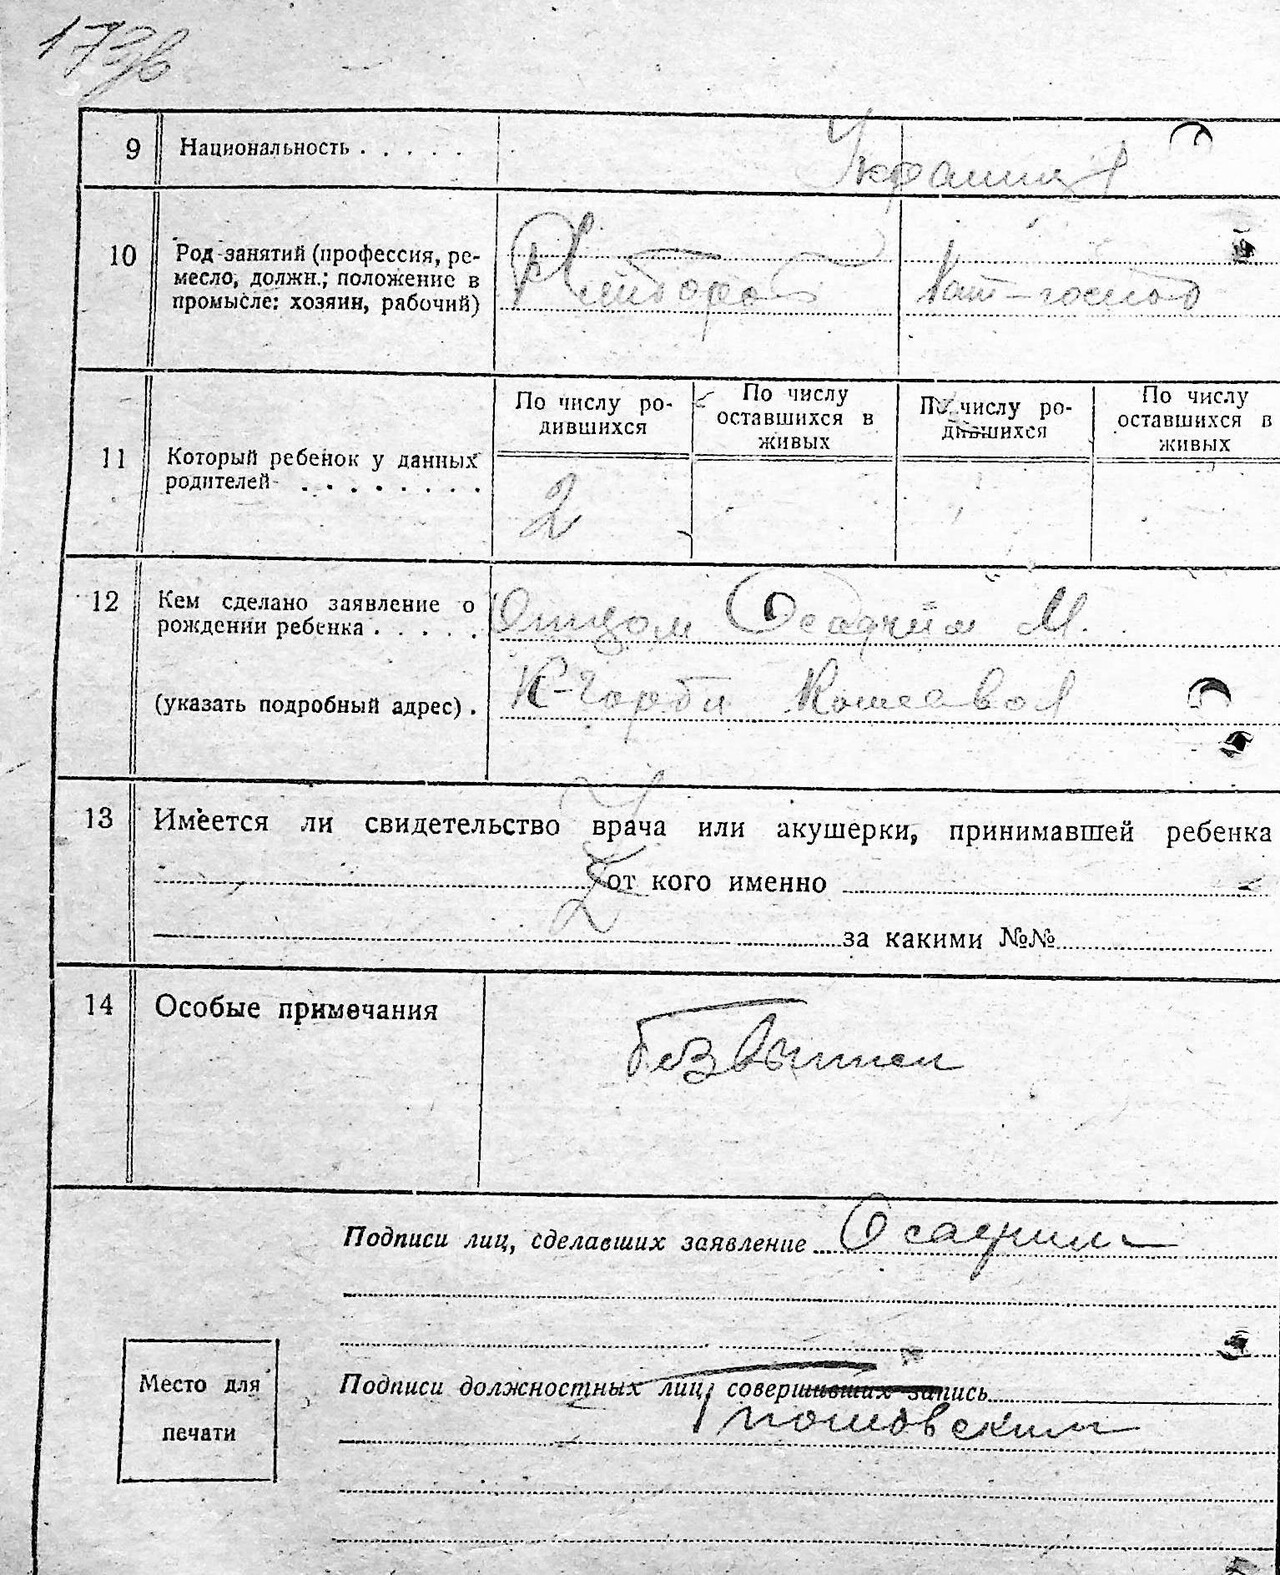 173
9 Национальность . . . . . Українці
10 Род занятий (профессия, ре-
месло, должн.; положение в
промысле: хозяин, рабочий)
11 Который ребенок у данных
родителей . . . . . . . .
По числу ро-
дившихся
По числу
оставшихся в
живых
По числу ро-
дившихся
По числу
оставшихся в
живых
2
12 Кем сделано заявление о
рождении ребенка . . . . . Отцом Осадчим М.
(указать подробный адрес) .
13 Имеется ли свидетельство врача или акушерки, принимавшей ребенка
от кого именно
за какими №№
14 Особые примечания
без
Подписи лиц, сделавших заявление Осадчий
Подписи должностных лиц, совершивших запись
Место для
печати